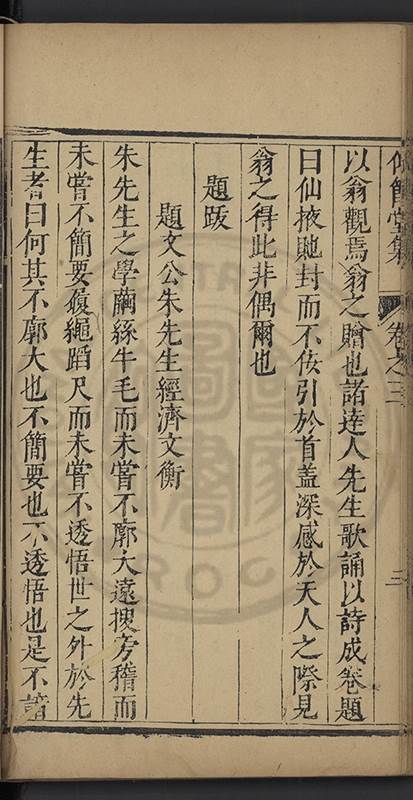 堂集 卷之三 二
以翁觀焉翁之贈也諸達人先生歌誦以詩成卷題
曰仙掖貤封而不佞引於首盖深感於天人之際見
翁之得此非偶爾也
題跋
題文公朱先生經濟文衡
朱先生之學繭絲牛毛而未嘗不廓大遠搜旁稽而
未嘗不簡要履繩蹈尺而未嘗不透悟世之外於先
生者曰何其不廓大也不簡要也不透悟也是不諳